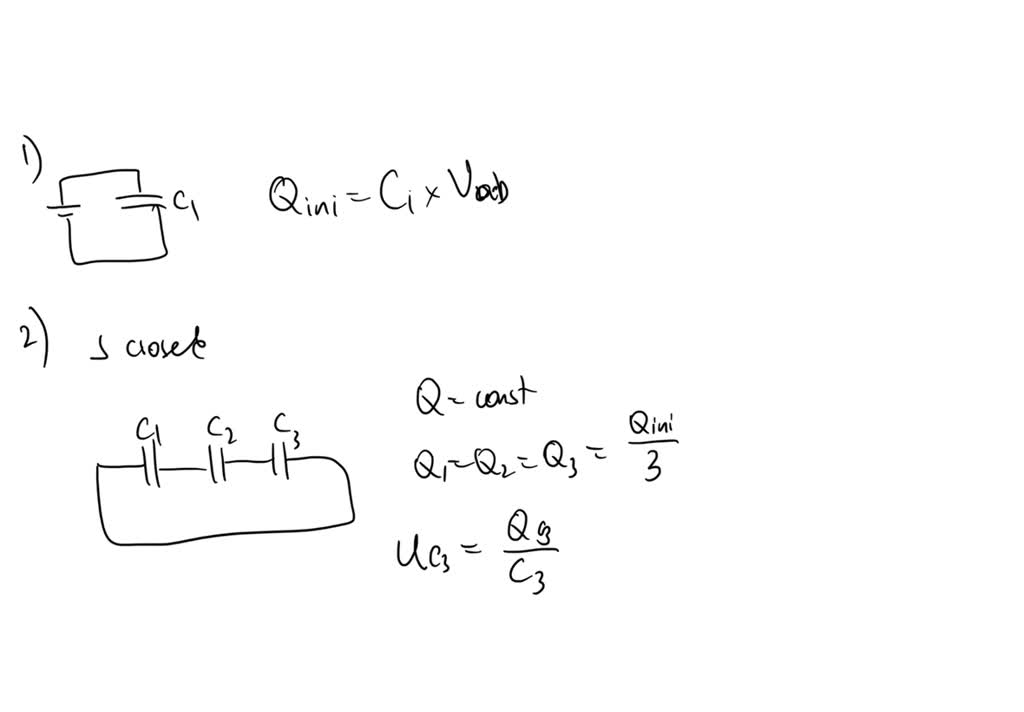 1)
C1
Qini = C1 × Vab
2) S closed
C1 C2 C3
Q = const
Q1 = Q2 = Q3 = Qini / 3
UC3 = Q3 / C3